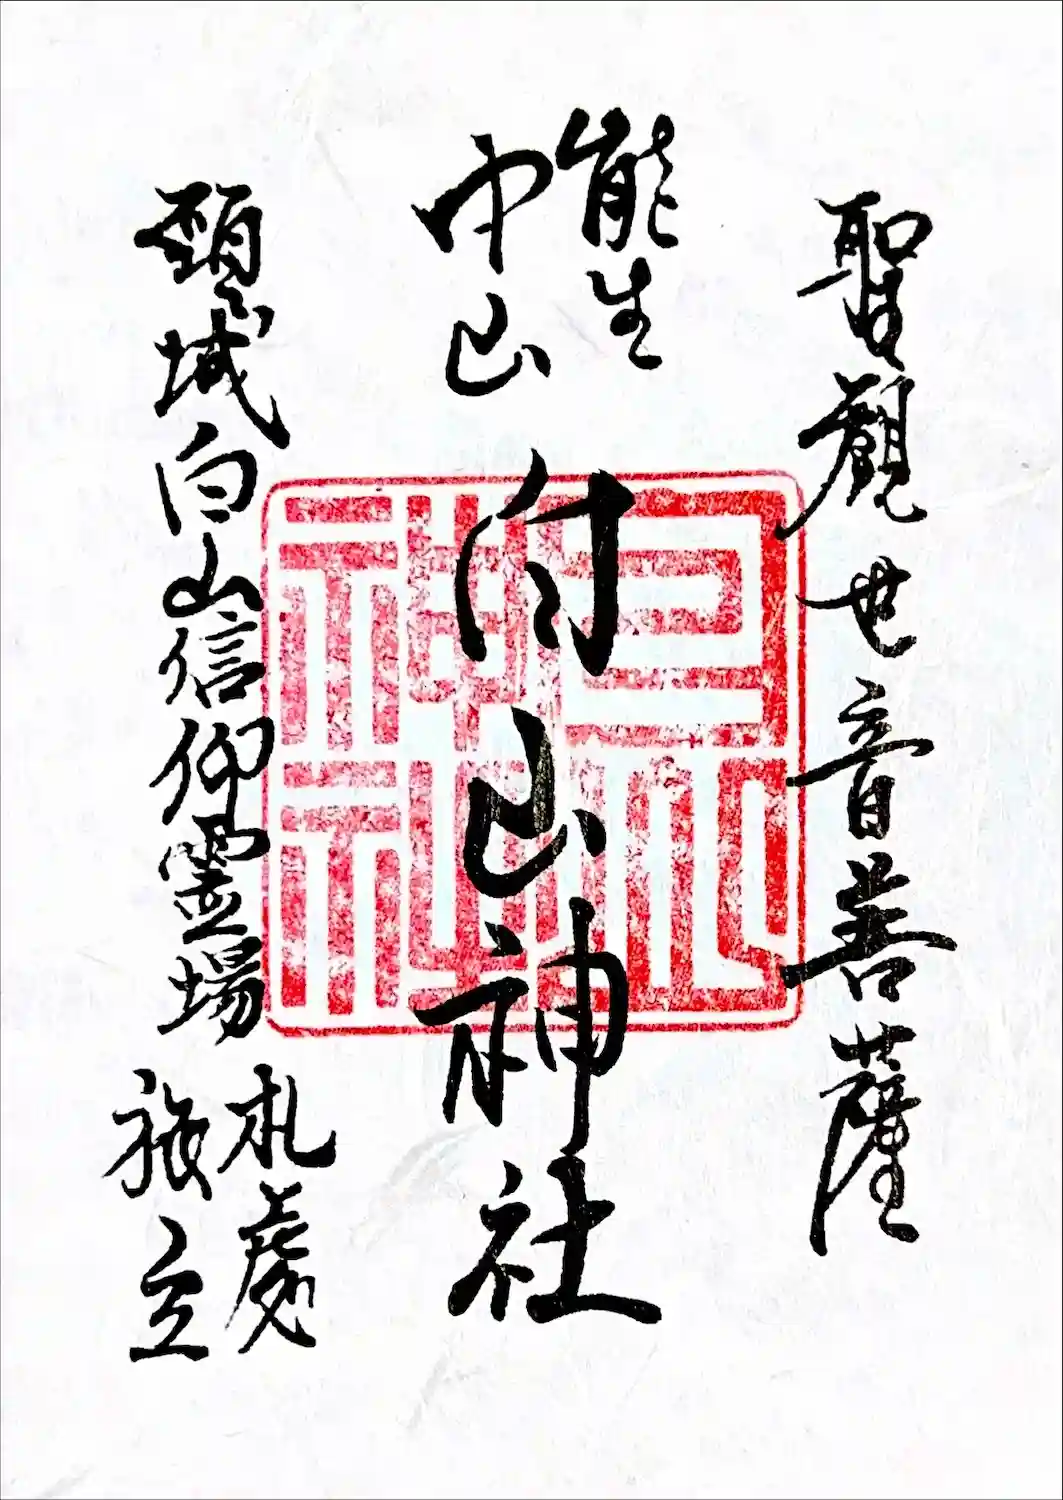 聖観世音菩薩
能生
中山
白山神社
頸城白山信仰霊場
札處
旅立